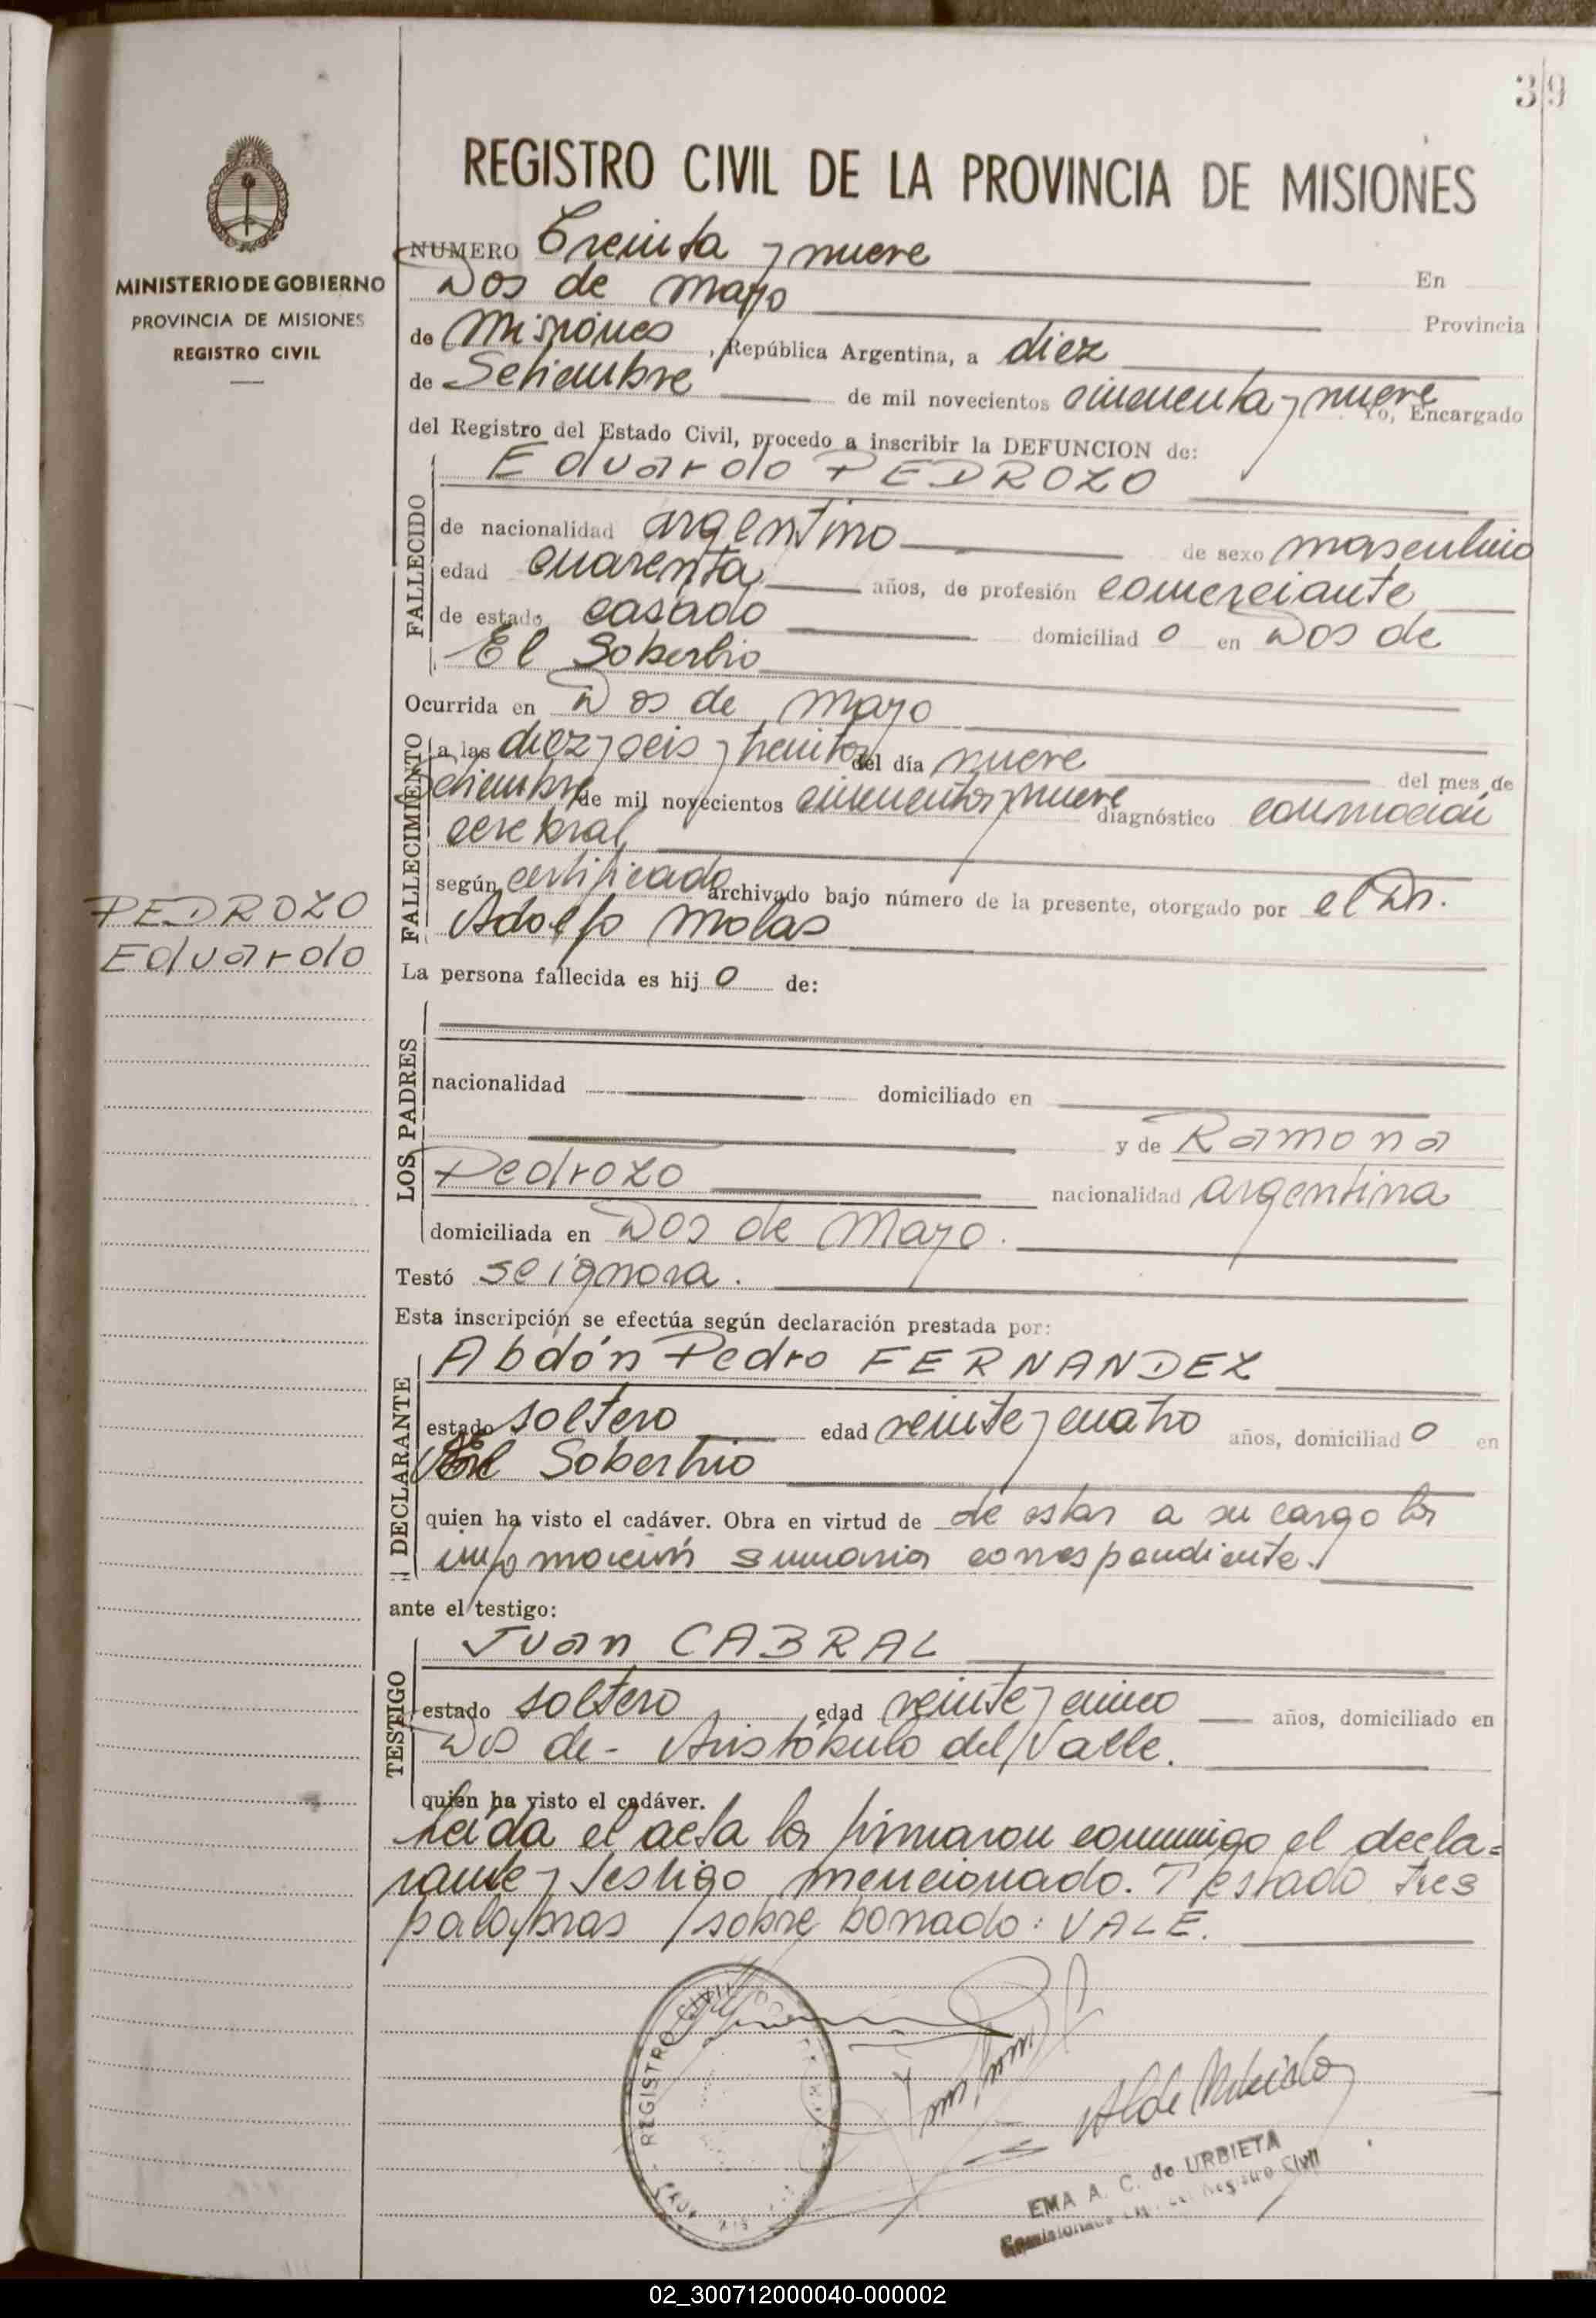 39
MINISTERIO DE GOBIERNO
PROVINCIA DE MISIONES
REGISTRO CIVIL
REGISTRO CIVIL DE LA PROVINCIA DE MISIONES
NUMERO Treinta y nueve En
Dos de Mayo Provincia
de Misiones, República Argentina, a diez
de Setiembre de mil novecientos cincuenta y nueve Yo, Encargado
del Registro del Estado Civil, procedo a inscribir la DEFUNCION de:
Eduardo PEDROZO
FALLECIDO
de nacionalidad argentino de sexo masculino
edad cuarenta años, de profesión comerciante
de estado casado domiciliad o en Dos de
El Soberbio
Ocurrida en Dos de Mayo
FALLECIMIENTO
a las diez y seis y treinta del día nueve del mes de
Setiembre de mil novecientos cincuenta y nueve diagnóstico conmoción
cerebral
según certificado archivado bajo número de la presente, otorgado por el Dr.
Adolfo Molas
PEDROZO
Eduardo
La persona fallecida es hij o de:
LOS PADRES
nacionalidad domiciliado en
y de Ramona
Pedrozo nacionalidad argentina
domiciliada en Dos de Mayo.
Testó se ignora.
Esta inscripción se efectúa según declaración prestada por:
Abdón Pedro FERNANDEZ
DECLARANTE
estado soltero edad veinte y cuatro años, domiciliad o en
El Soberbio
quien ha visto el cadáver. Obra en virtud de de estar a su cargo la
información sumaria correspondiente.
ante el testigo:
Juan CABRAL
TESTIGO
estado soltero edad veinte y cinco años, domiciliado en
Dos de - Aristóbulo del Valle.
quien ha visto el cadáver.
Leída el acta la firmaron conmigo el decla=
rante y testigo mencionado. Testado tres
palabras / sobre borrado: VALE.
REGISTRO CIVIL
EMA A. C. de URBIETA
Registro Civil
02_300712000040-000002